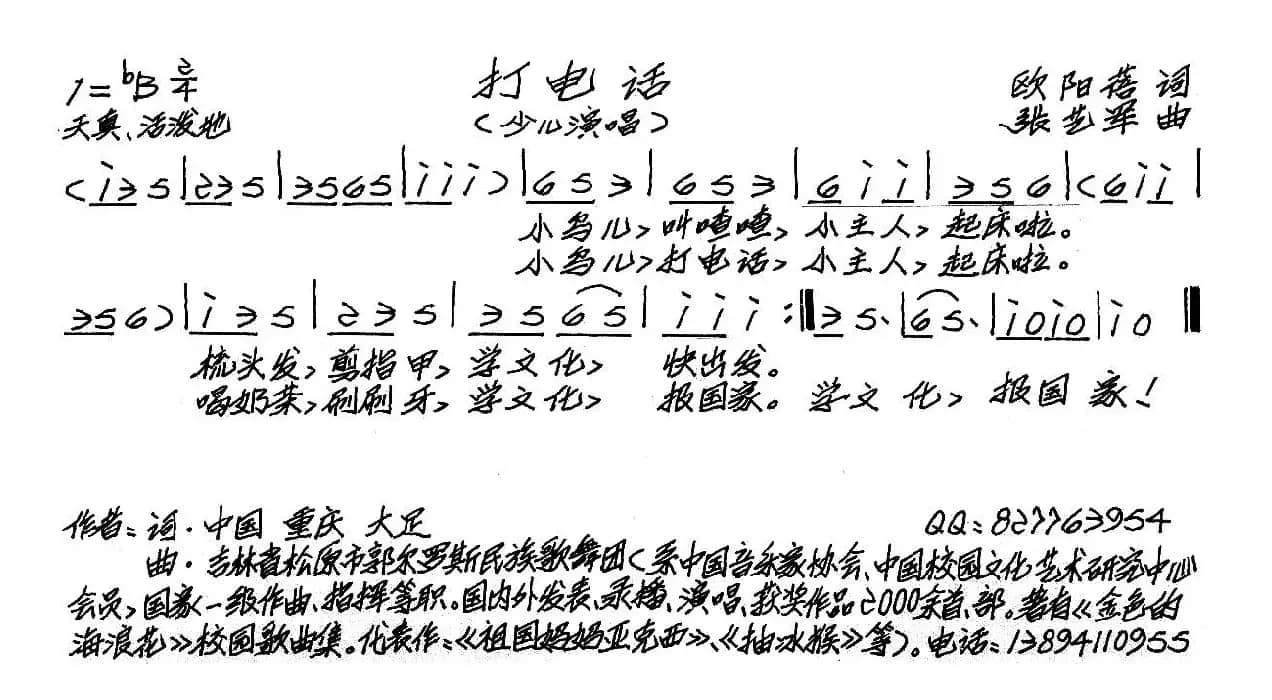 1=ᵇB 2/4
打电话
欧阳蓓 词
天真、活泼地
(少儿演唱)
张艺军 曲
(i35|235|3565|iii)|653|653|6ii|356|(6ii|
小鸟儿,叫喳喳,小主人,起床啦。
小鸟儿,打电话,小主人,起床啦。
356)|i35|235|3565|iii:‖35、|65、|i0i0|i0‖
梳头发,剪指甲,学文化,快出发。
喝奶茶,刷刷牙,学文化,报国家。学文化,报国家!
作者:词·中国 重庆 大足 QQ:827763954
曲·吉林省松原市郭尔罗斯民族歌舞团(系中国音乐家协会、中国校园文化艺术研究中心
会员,国家一级作曲、指挥等职。国内外发表、录播、演唱、获奖作品2000余首、部。著有《金色的
海浪花》校园歌曲集。代表作:《祖国妈妈亚克西》、《抽冰猴》等)。电话:13894110955